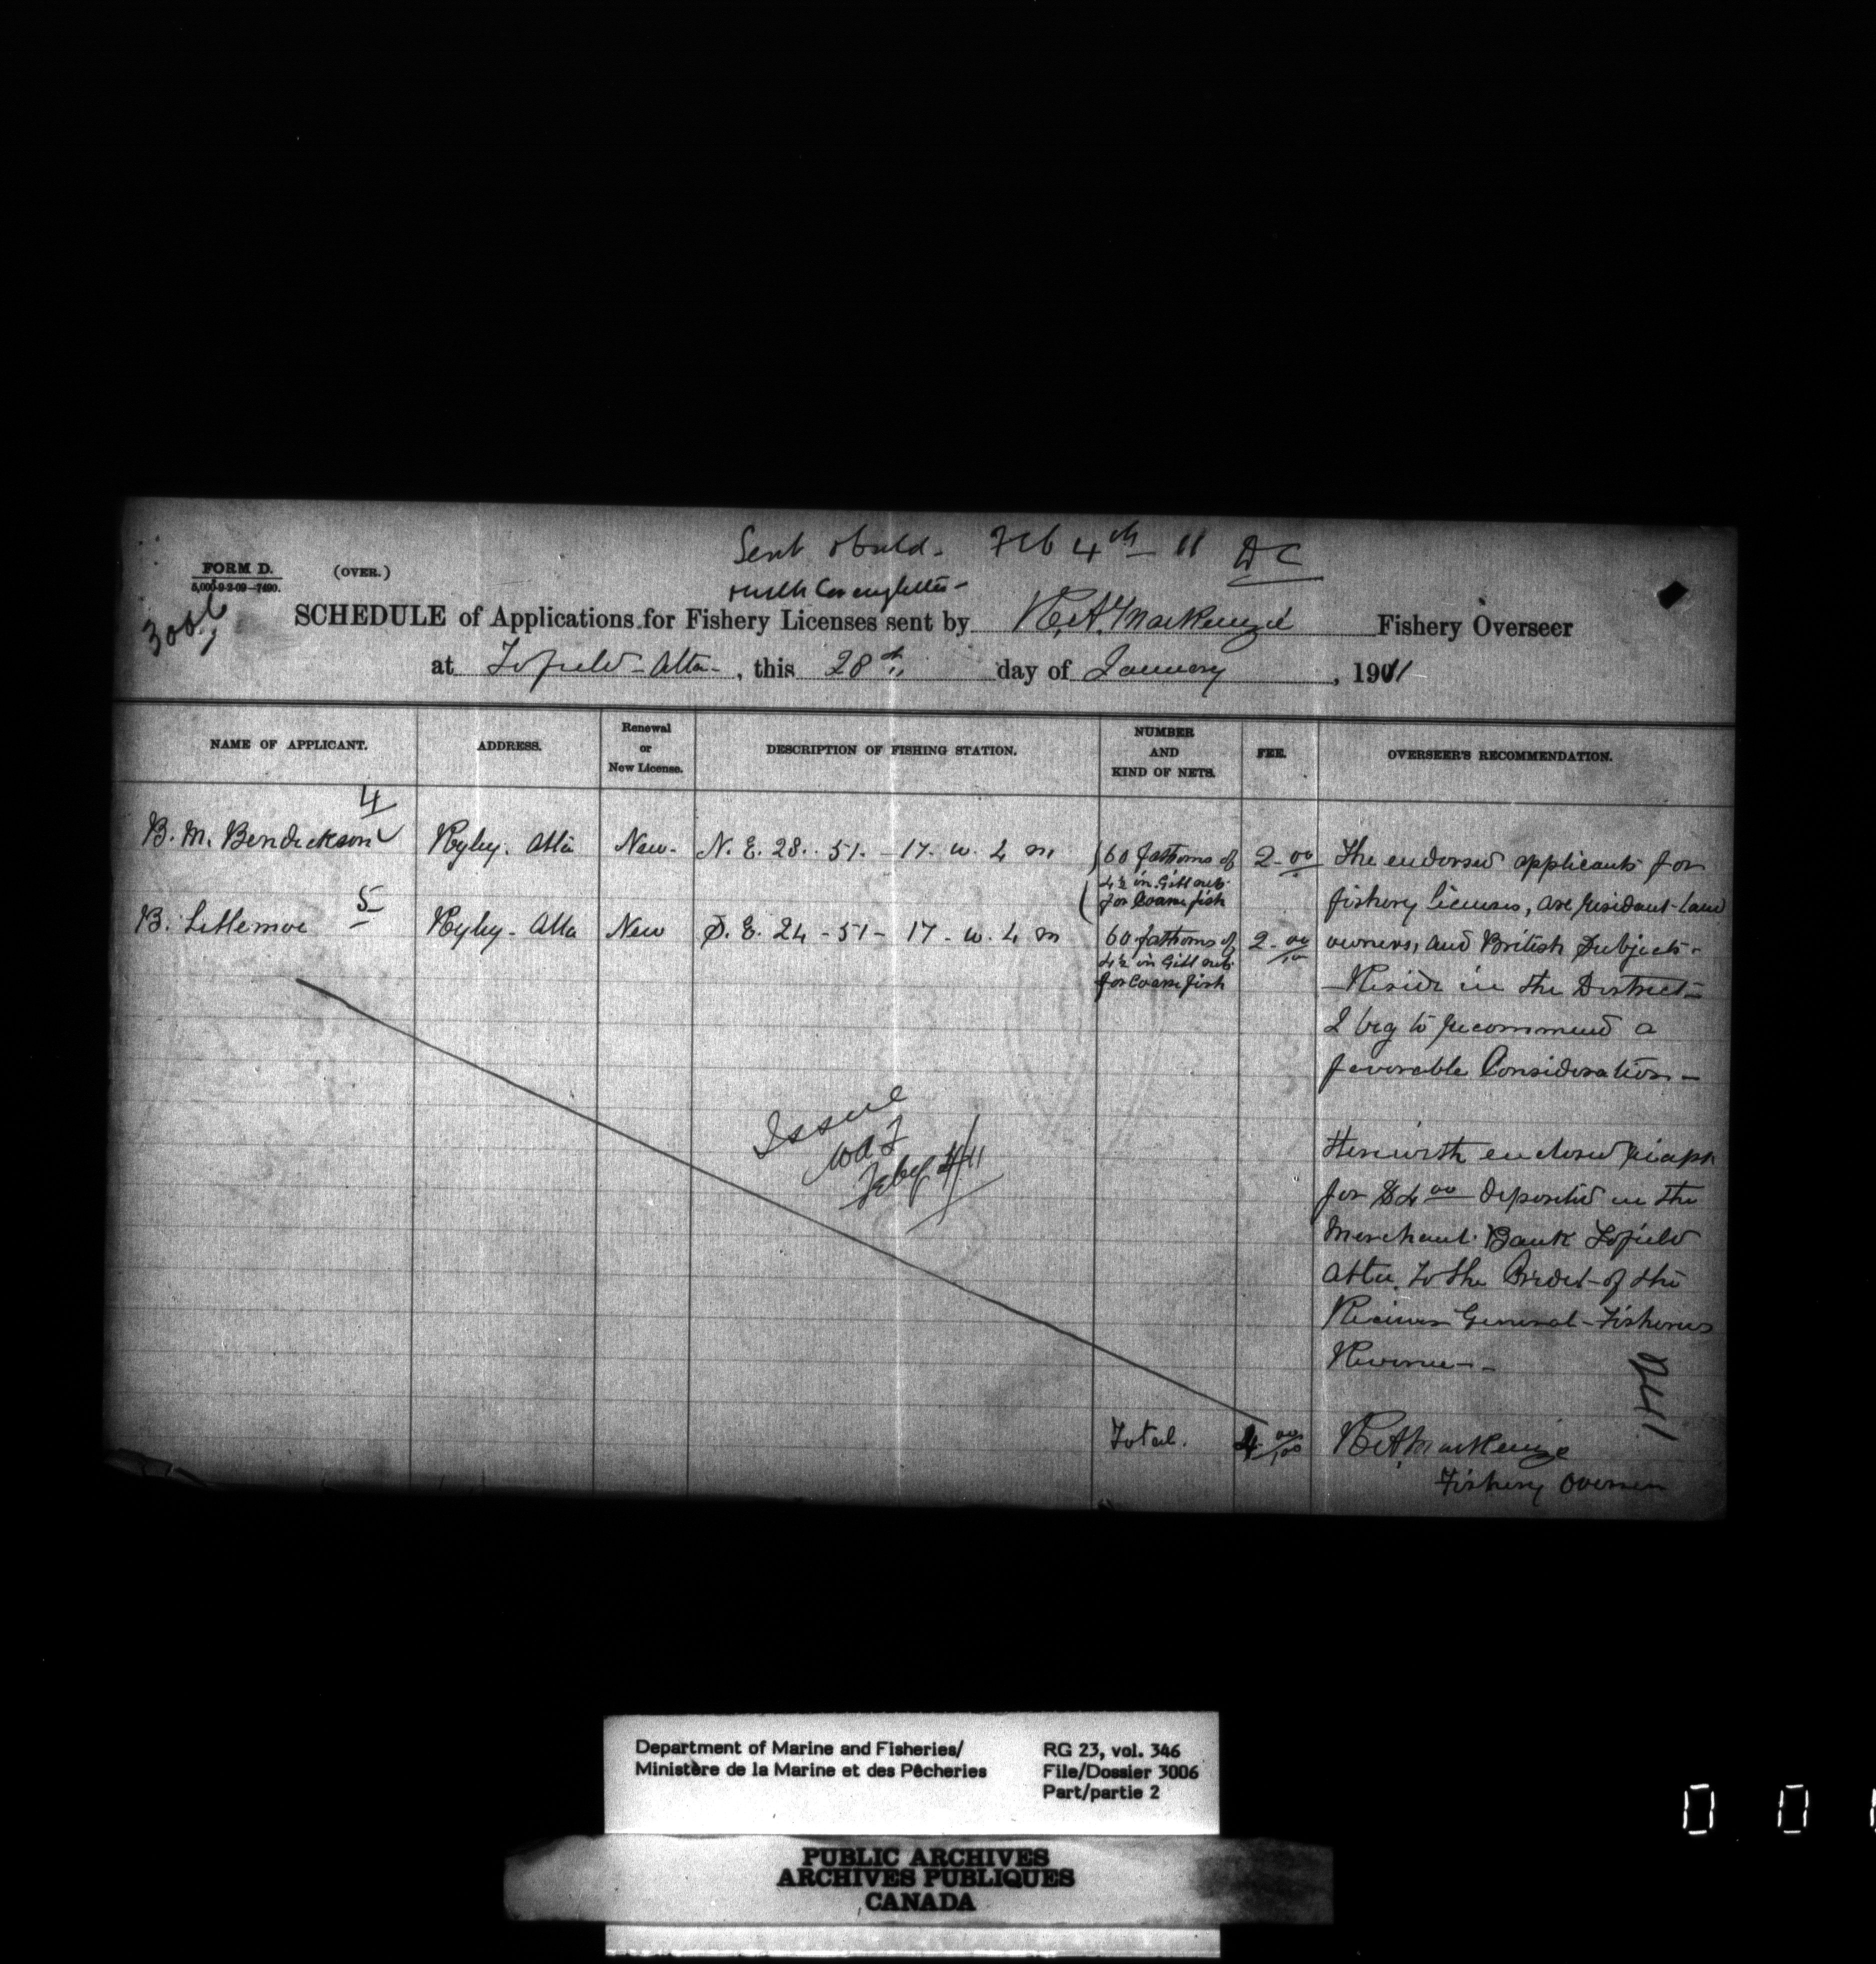 Sent Feb 4th - 11 DC
FORM D.
(OVER.)
5,000-9-2-09-7490.
3006
SCHEDULE of Applications for Fishery Licenses sent by R.A. MacKenzie Fishery Overseer
at Tofield - Alta -, this 28th day of January, 1911
NAME OF APPLICANT.
ADDRESS.
Renewal
or
New License.
DESCRIPTION OF FISHING STATION.
NUMBER
AND
KIND OF NETS.
FEE.
OVERSEER'S RECOMMENDATION.
4
B. M. Bendickson Ryley. Alta New - N. E. 28 . 51 . - 17 - w. 4 m
60 fathoms of
4½ in. Gill nets
for Coarse fish
2-00
5
B. Lettemoe Ryley - Alta New S. E. 24 - 51 - 17 - w. 4 m
60 fathoms of
4½ in Gill nets
for Coarse fish
2-00/100
The endorsed applicants for
fishery licenses, are resident land
owners, and British Subjects -
Reside in the District -
I beg to recommend a
favorable Consideration -
Herewith enclosed
for $4 00 deposited in the
Merchant Bank Tofield
Alta. To the Credit of the
Receiver General - Fisheries
Revenue -
Issue
Feby 4/11
Total. 4 00/100
R.A. MacKenzie
Fishery Overseer
Department of Marine and Fisheries/
Ministère de la Marine et des Pêcheries
RG 23, vol. 346
File/Dossier 3006
Part/partie 2
PUBLIC ARCHIVES
ARCHIVES PUBLIQUES
CANADA
0 0